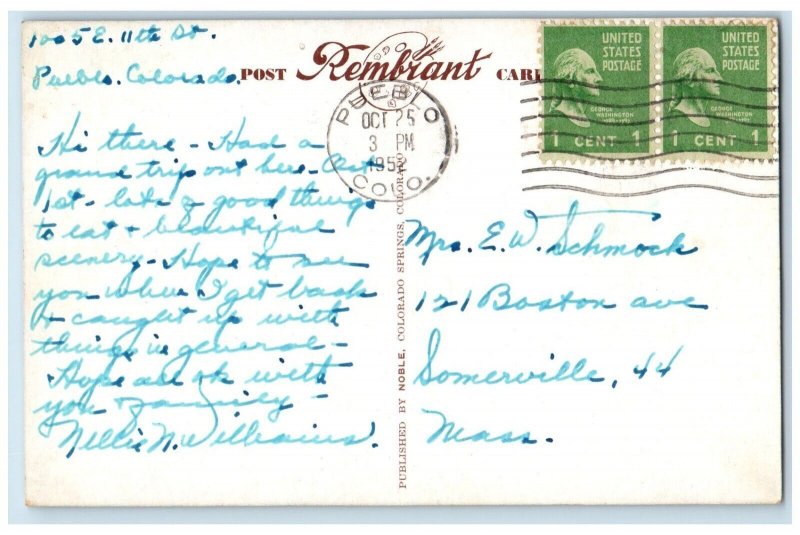 1005 E. 11th St.
Pueblo. Colorado.
POST Rembrant CARD
PUEBLO
OCT 25
3 PM
1952
COLO.
UNITED
STATES
POSTAGE
GEORGE
WASHINGTON
1 CENT 1
UNITED
STATES
POSTAGE
GEORGE
WASHINGTON
1 CENT 1
Hi there - Had a
grand trip out here - Oct
1st - lots of good things
to eat & beautiful
scenery - Hope to see
you when I get back
& caught up with
things in general -
Hope all ok with
you & family -
Nellie N. Williams.
PUBLISHED BY NOBLE, COLORADO SPRINGS, COLORADO
Mrs. E. W. Schmock
121 Boston ave
Somerville, 44
Mass.